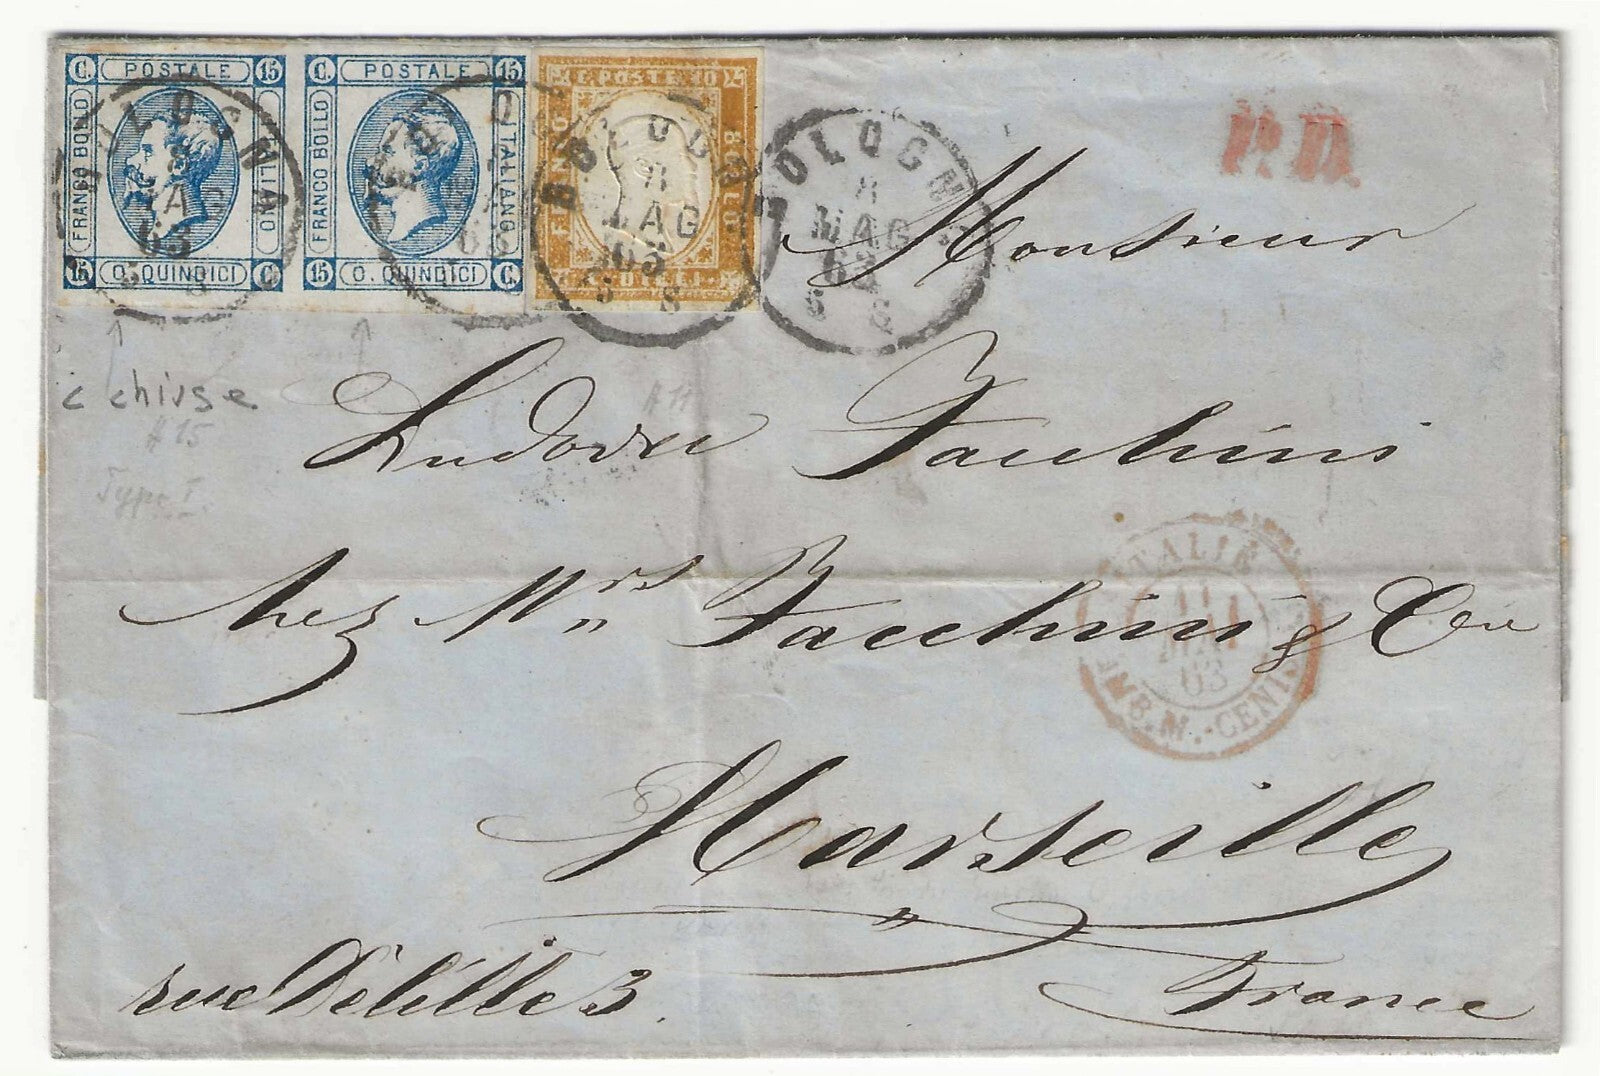 C. POSTALE 15
FRANCO BOLLO
ITALIANO
15 O. QUINDICI C.
C. POSTALE 15
FRANCO BOLLO
ITALIANO
15 O. QUINDICI C.
C. POSTE 10
FRANCO
BOLLO
BOLOGNA
8
MAG
63
3 S
BOLOGNA
BOLOGNA
8
MAG
63
3 S
BOLOGNA
8
MAG
63
3 S
P.D.
Monsieur
c chiuse
A 15
Type I.
A 11
Ludovic Facchini
chez Mrs Facchini & Cie
ITALIE
11
MAI
63
AMB. M. CENIS
Marseille
rue Délille 3.
France